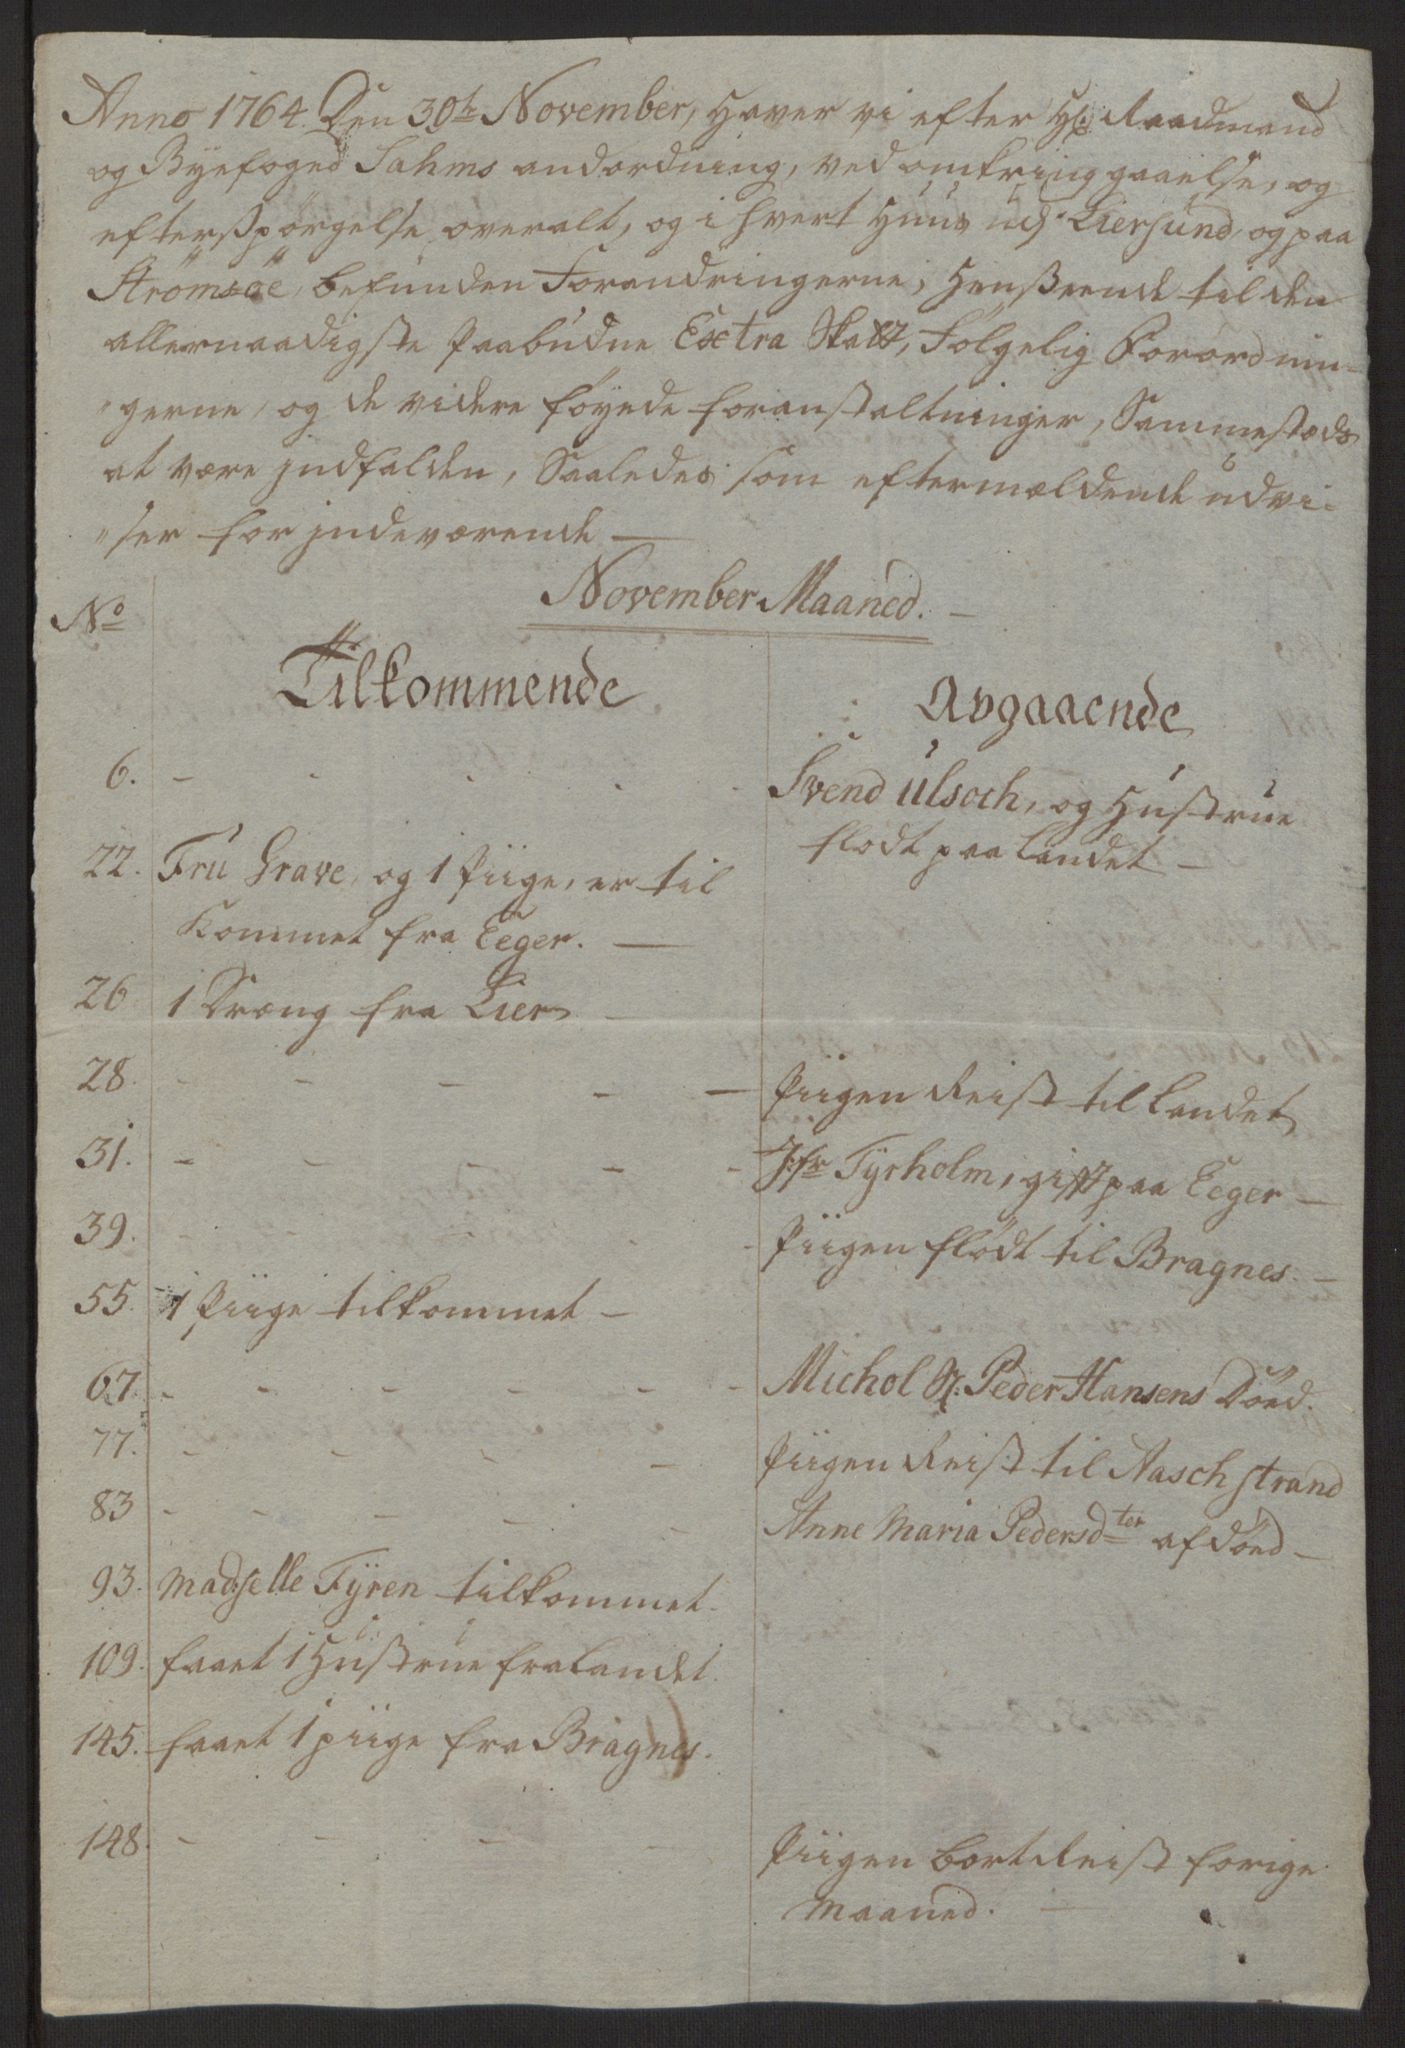 Anno 1764. Den 30te November, haver vi efter Hr. Raadmand
og Byefoged Sahms andordning, ved omkringgaaelse, og
efterspørgelse overalt, og i hvert Huus ud Liersund, og paa
Strømsøe, befunden Forandringerne, henseende til den
allernaadigste Paabudne Extra Skatt, følgelig Forordnin-
"gerne, og de videre føyede foranstaltninger, Sammestæds
at være jndfalden, Saaledes som eftermældende udvi-
"ser for jndeværende —
November Maaned. —
No
Tilkommende
Avgaaende
6. - - - - - Svend Ulsoch, og Hustrue
flødt paa Landet —
22. Fru Grave, og 1 Piige, er til
Kommet fra Eeger. —
26 1 Dræng fra Lier —
28. - - - - - Piigen Reist til Landet
31. - - - - - Jfr Tyrholm, gift paa Eeger —
39. - - - - - Piigen flødt til Bragnes. —
55. 1 Piige tilkommet —
67. - - - - - Michol Sl. Peder Hansens Død.
77. - - - - Piigen Reist til Aasch strand
83 - - - - - Anne Maria Pedersdter afdød —
93. Madselle Fyren tilkommet.
109. faaet 1 Hustrue fra Landet.
145. faaet 1 piige fra Bragnes.
148. - - - - Piigen bortReist forige
Maaned. —